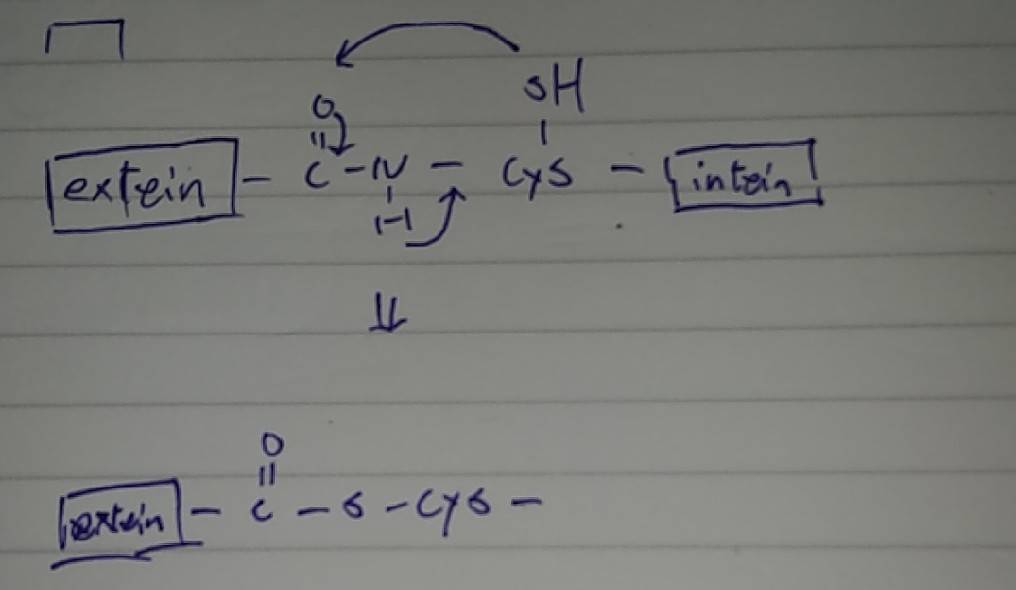 SH
O
extein - C - N - Cys - intein
H
O
extein - C - S - Cys -